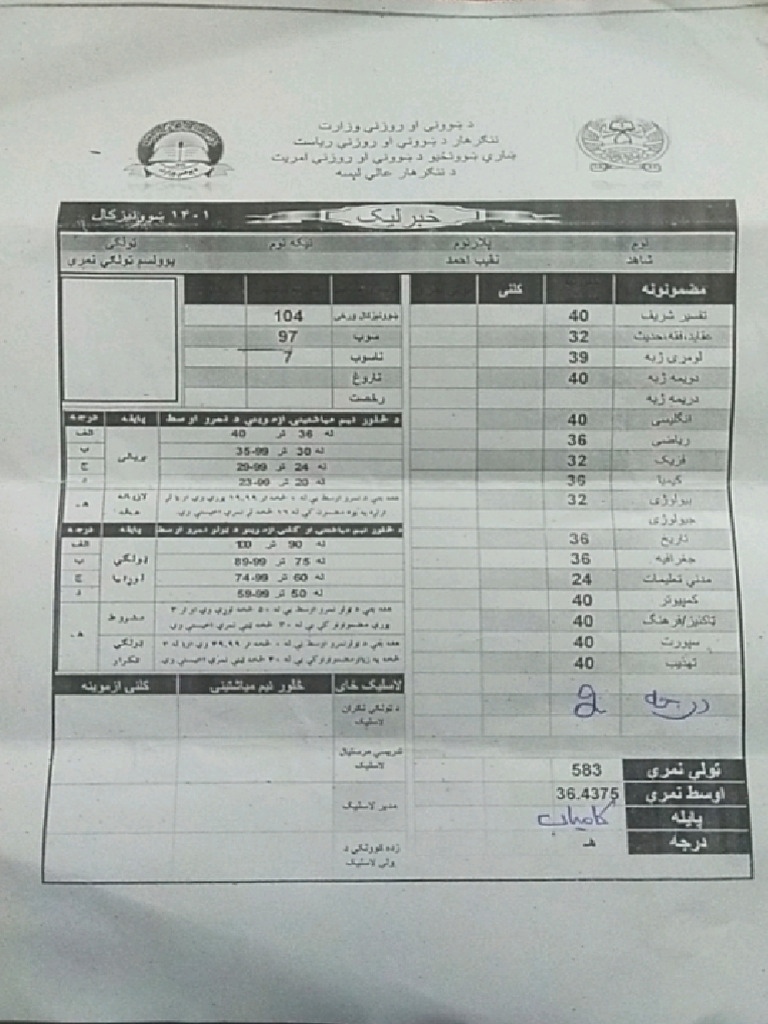 د ښوونې او روزنې وزارت
ننګرهار د ښوونې او روزنې ریاست
ښاري ښوونځیو د ښوونې او روزنې امریت
د ننګرهار عالي لیسه
خبرلیک
۱۴۰۱ ښوونیزکال
نوم پلارنوم نیکه نوم ټولګی
شاهد نقیب احمد یوولسم ټولګي نمرې
مضمونونه کلنی
تفسیر شریف 40
عقاید،فقه،حدیث 32
لومړی ژبه 39
دویمه ژبه 40
دریمه ژبه
انګلیسي 40
ریاضي 36
فزیک 32
کیمیا 36
بیولوژي 32
جیولوژي
تاریخ 36
جغرافیه 36
مدني تعلیمات 24
کمپیوټر 40
ټاکنیز/فرهنګ 40
سپورت 40
تهذیب 40
درجه
ټولې نمرې 583
اوسط نمرې 36.4375
پایله کامیاب
درجه هـ
ښوونیزکال ورځې 104
سوب 97
ناسوب 7
ناروغ
رخصت
د څلور نیم میاشتینې ازموینې د نمرو اوسط پایله درجه
له 36 تر 40 الف
له 30 تر 35-99 ب
له 24 تر 29-99 ج
له 20 تر 23-99 د
بریالی
هـ
د څلور نیم میاشتنی او کلنی ازموینو د ټولو نمرو اوسط پایله درجه
له 90 تر 100 الف
له 75 تر 89-99 ب
له 60 تر 74-99 ج
له 50 تر 59-99 د
مشروط
هـ
تکرار
لاسلیک ځای څلور نیم میاشتینی کلنی ازموینه
د ټولګي نګران لاسلیک
تدریسي مرستیال لاسلیک
مدیر لاسلیک
زده کوونکي د ولي لاسلیک